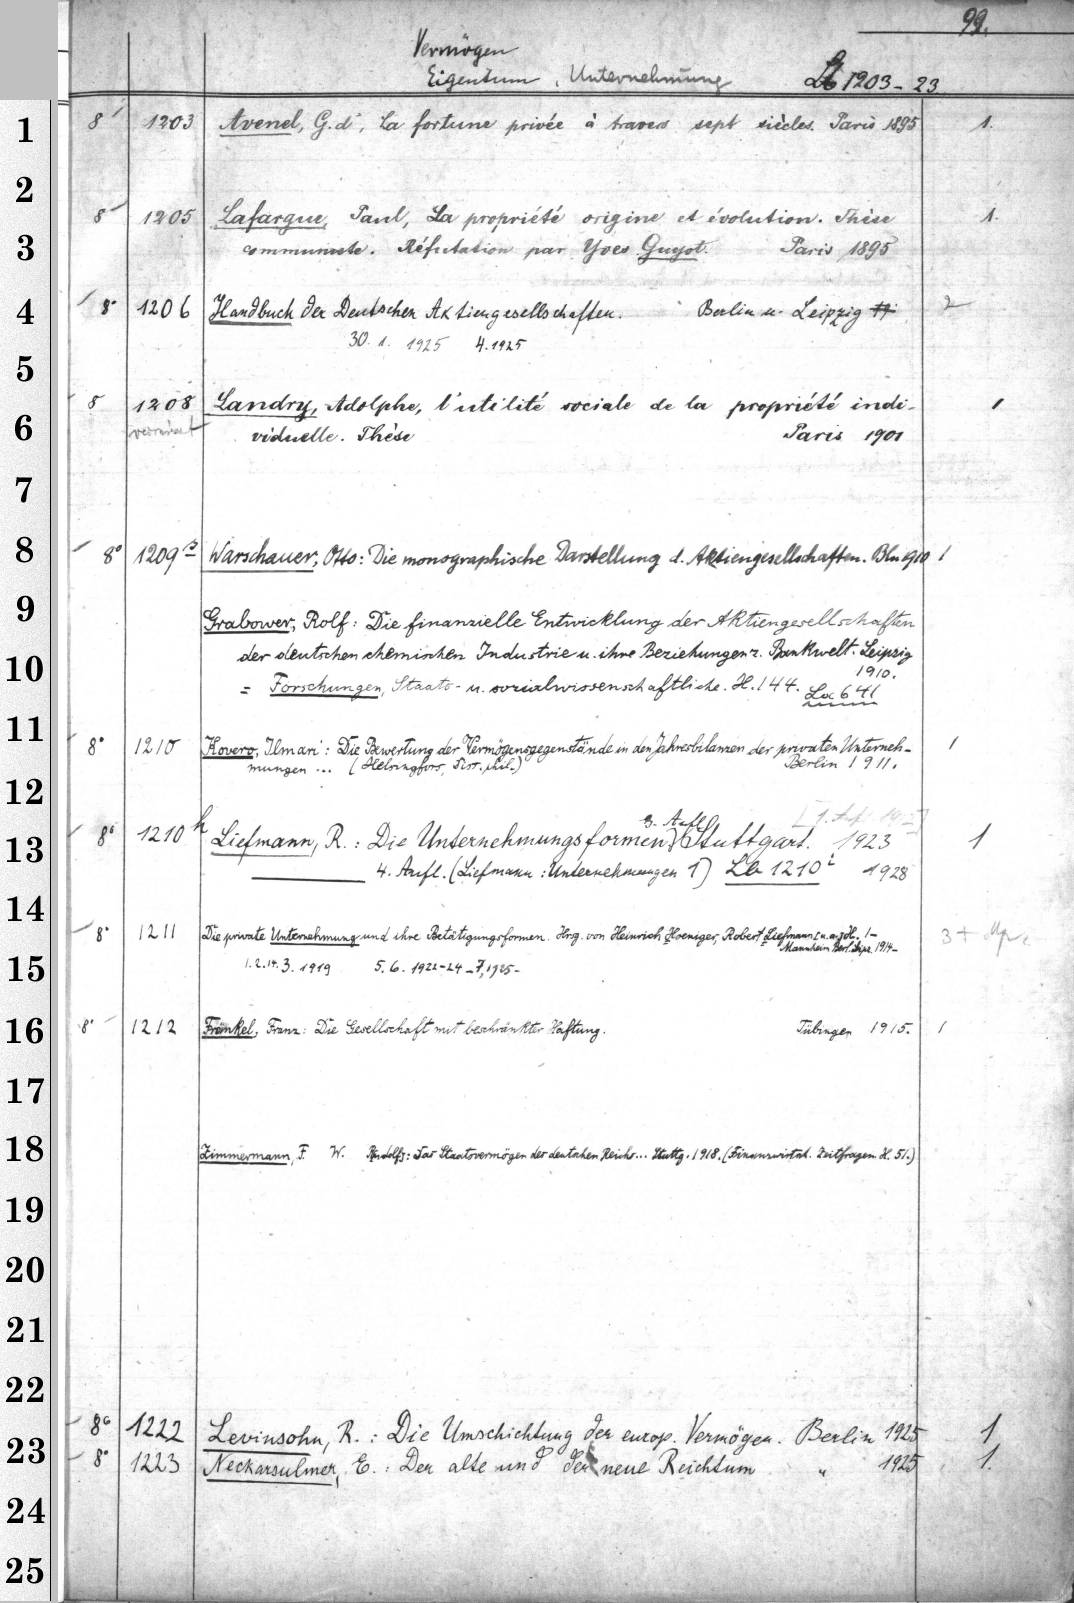 99.
Vermögen
Eigentum, Unternehmung Lb 1203-23
1 8° 1203 Avenel, G. d', La fortune privée à travers sept siècles. Paris 1895 1.
2
8° 1205 Lafargue, Paul, La propriété origine et évolution. Thèse 1.
3 communiste. Réfutation par Yves Guyot. Paris 1895
4 8° 1206 Handbuch der Deutschen Aktiengesellschaften. Berlin u. Leipzig 2
30. 1. 1925 4. 1925
5
8° 1208 Landry, Adolphe, l'utilité sociale de la propriété indi- 1
6 vermisst viduelle. Thèse Paris 1901
7
8 8° 1209 Warschauer, Otto: Die monographische Darstellung d. Aktiengesellschaften. Bln 1910 1
9 Grabower, Rolf: Die finanzielle Entwicklung der Aktiengesellschaften
10 der deutschen chemischen Industrie u. ihre Beziehungen z. Bankwelt. Leipzig
1910.
= Forschungen, Staats- u. sozialwissenschaftliche. H. 144. La 641
11 8° 1210 Kovero, Ilmari: Die Bewertung der Vermögensgegenstände in den Jahresbilanzen der privaten Unterneh- 1
mungen ... (Helsingfors, Diss. phil.) Berlin 1911.
12
3. Aufl.
13 8° 1210 h Liefmann, R.: Die Unternehmungsformen Stuttgart. 1923 1
4. Aufl. (Liefmann: Unternehmungen 1) Lb 1210 i 1928
14
8° 1211 Die private Unternehmung und ihre Betätigungsformen. Hrg. von Heinrich Hoeniger, Robert Liefmann [u. a.] 1- 3+
Mannheim Berl. Lpz. 1914-
15 1. 2. 14. 3. 1919 5. 6. 1922-24 - 7, 1925-
16 8° 1212 Fränkel, Franz: Die Gesellschaft mit beschränkter Haftung. Tübingen 1915. 1
17
18 Zimmermann, F. W. Rudolf: Das Staatsvermögen des deutschen Reichs... Stuttg. 1918. (Finanzwirtsch. Zeitfragen H. 51.)
19
20
21
22
8° 1222 Levinsohn, R.: Die Umschichtung der europ. Vermögen. Berlin 1925 1
23 8° 1223 Neckarsulmer, E.: Der alte und der neue Reichtum " 1925 1.
24
25